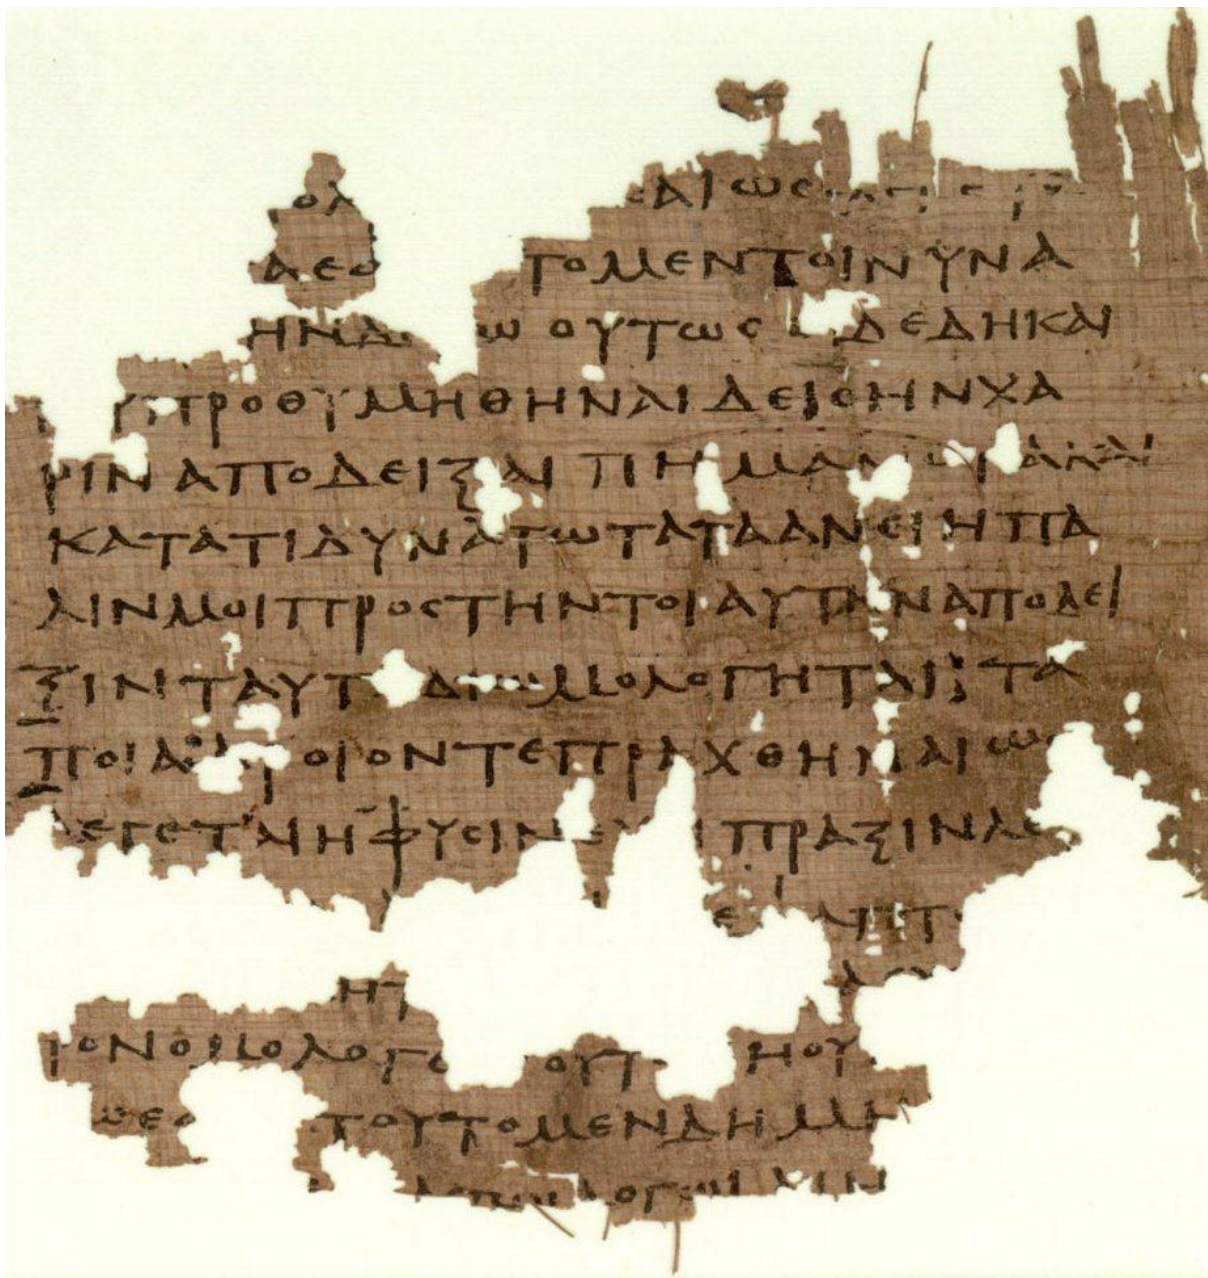 ολ ΑΙ ως
ΛΕΟ ΤΟΜΕΝΤΟΙΝΥΝΑ
ΗΝΔ Ω ΟΥΤΩΣ ΔΕΔΗΚΑΙ
ΠΡΟΘΥΜΗΘΗΝΑΙΔΕΙΣΗΝΧΑ
ΡΙΝΑΠΟΔΕΙΞΑΙ ΠΗ ΜΑΛ ΚΑΙ
ΚΑΤΑΤΙΔΥΝΑΤΩΤΑΤΑΑΝΕΙΗΠΑ
ΛΙΝΜΟΙΠΡΟΣΤΗΝΤΟΙΑΥΤΗΝΑΠΟΔΕΙ
ΞΙΝΤΑΥΤ ΔΙΩΜΟΛΟΓΗΤΑΙ ΤΑ
ΠΟΙΑ ΟΙΟΝΤΕΠΡΑΧΘΗΝΑΙΩΣ
ΛΕΓΕΤΑΙΗΦΥΣΙΝ ΠΡΑΞΙΝΛΕ
Ε ΑΛΗΤ
ΗΤ
ΟΝΟΜΟΛΟΓΩ ΟΥΤ ΗΟΥ
ΨΕΟ ΤΟΥΤΟΜΕΝΔΗΜΗ
ΛΟΓΩΙ ΛΙΝ